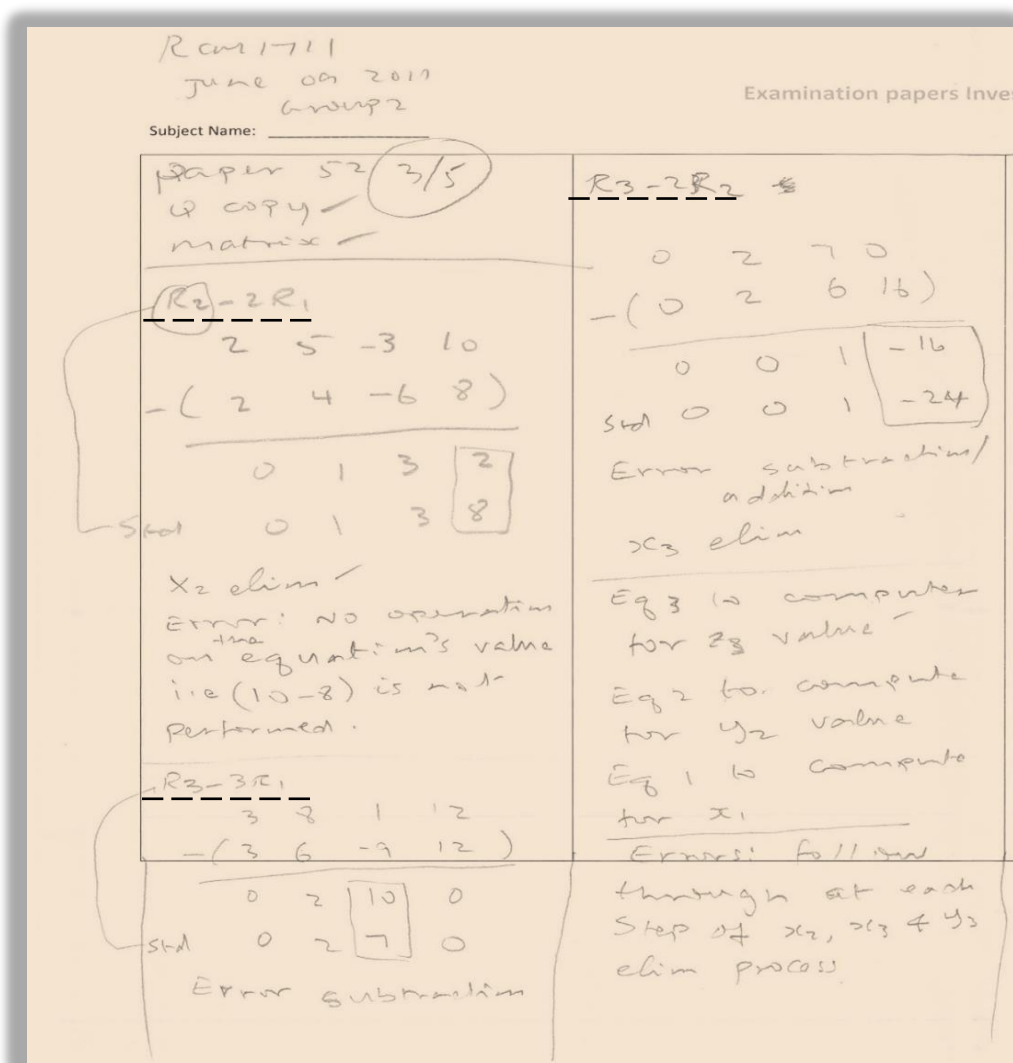 RCM1711
June 09 2017
Group 2
Examination papers Inves
Subject Name:
Paper 52 3/5
Q copy ✓
matrix ✓
R2-2R1
2 5 -3 10
-( 2 4 -6 8 )
0 1 3 2
Std 0 1 3 8
X2 elim ✓
Error: NO operation
on the equation's value
i.e (10-8) is not
performed.
R3-3R1
3 8 1 12
-(3 6 -9 12 )
0 2 10 0
Std 0 2 7 0
Error subtraction
R3-2R2
0 2 7 0
-( 0 2 6 16 )
0 0 1 -16
Std 0 0 1 -24
Error subtraction/
addition
x3 elim
Eq 3 to computer
for z3 value
Eq 2 to compute
for y2 value
Eq 1 to compute
for x1
Errors: follow
through at each
Step of x2, x3 & y3
elim process.